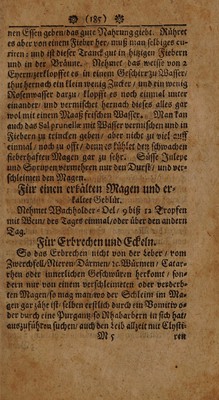 ❀ (185) ❀
nen Essen geben/ das gute Nahrung giebt. Rühret
es aber von einem Fieber her/ muß man selbiges cu-
riren/ und ist dieser Tranck gut in hitzigen Fiebern
und in der Bräune. Nehmet das weisse von 2
Eyern zerklopffet es in einem Geschirr zu Wasser/
thut hernach ein klein wenig Zucker/ und ein wenig
Rosenwasser darzu/ klopfft es noch einmal unter
einander/ und vermischet hernach dieses alles gar
wol mit einem Maaß frischen Wasser. Man kan
auch das Sal prunellæ mit Wasser vermischen und in
Fiebern zu trincken geben/ aber nicht zu viel auff
einmal/ noch zu offt/ denn es kühlet den schwachen
fieberhafften Magen gar zu sehr. Süsse Julepe
und Syrupen vermehren nur den Durst/ und ver-
schleimen den Magen.
Für einen erkälten Magen und er-
kaltes Geblüt.
Nehmet Wachholder-Oel/ 9 biß 12 Tropfen
mit Wein/ des Tages einmal/ oder über den andern
Tag.
Für Erbrechen und Eckeln.
So das Erbrechen nicht von der Leber/ vom
Zwerchsell/ Nieren/ Därmen/ ꝛc. Würmen/ Catar-
rhen oder innerlichen Geschwüren herkomt/ son-
dern nur von einem verschleimten oder verderb-
ten Magen/ so mag man/ wo der Schleim im Ma-
gen gar zäh ist/ selben erstlich durch ein Vomitiv o-
der durch eine Purganz/ so Rhabarbern in sich hat/
auszuführen suchen/ auch den Leib allzeit mit Clysti-
M 5 ren